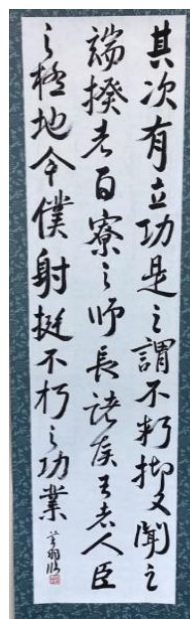 其次有立功是之謂不朽抑又聞之
端揆者百寮之師長諸侯王者人臣
之極地今僕射挺不朽之功業